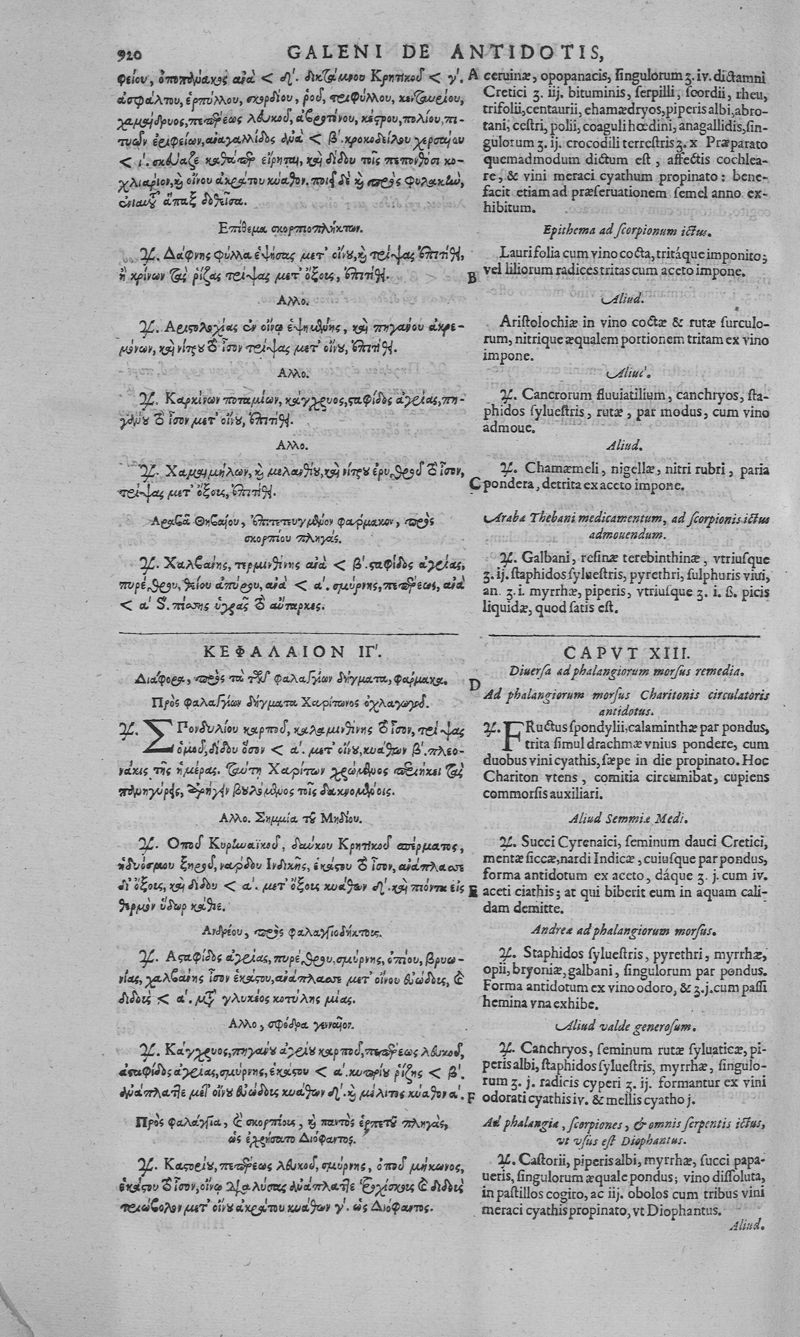 920
GALENI DE ANTIDOTIS,
φείου, ὀποπάνακος ἀνὰ < δʹ. δικτάμνου Κρητικοῦ < γʹ.
ἀσφάλτου, ἑρπύλλου, σκορδίου, ῥοῦ, τριφύλλου, κενταυρίου,
χαμαίδρυος, πεπέρεως λευκοῦ, ἀβροτόνου, κέστρου, πολίου, πι-
τύων ἐριφείων, ἀναγαλλίδος ἀνὰ < βʹ. κροκοδείλου χερσαίου
< ιʹ. σκεύαζε καθάπερ εἴρηται, καὶ δίδου τοῖς πεπονθόσι κο-
χλιάριον, καὶ οἴνου ἀκράτου κύαθον. ποιεῖ δὲ καὶ πρὸς φυλακὴν,
ἐνιαυτοῦ ἅπαξ δοθεῖσα.
Επίθεμα σκορπιοπλήκτων.
♃. Δάφνης φύλλα ἑψήσας μετ' οἴνου, καὶ τρίψας ἐπιτίθει,
ἢ κρίνων τὰς ῥίζας τρίψας μετ' ὄξους, ἐπιτίθει.
Αλλο.
♃. Αριστολοχίας ἐν οἴνῳ ἑψημένης, καὶ πηγάνου ἀκρε-
μόνων, καὶ νίτρου τὸ ἴσον τρίψας μετ' οἴνου, ἐπιτίθει.
Αλλο.
♃. Καρκίνων ποταμίων, κάγχρυος, σταφίδος ἀγρίας, πη-
γάνου τὸ ἴσον μετ' οἴνου, ἐπιτίθει.
Αλλο.
♃. Χαμαιμήλων, καὶ μελανθίου, καὶ νίτρου ἐρυθροῦ τὸ ἴσον,
τρίψας μετ' ὄξους, ἐπιτίθει.
Αραβᾶ Θηβαίου, ἐπιτετευγμένον φάρμακον, πρὸς
σκορπίου πληγάς.
♃. Χαλβάνης, τερμινθίνης ἀνὰ < βʹ. σταφίδος ἀγρίας,
πυρέθρου, θείου ἀπύρου, ἀνὰ < αʹ. σμύρνης, πεπέρεως, ἀνὰ
< αʹ S. πίσσης ὑγρᾶς τὸ αὔταρκες.
ΚΕΦΑΛΑΙΟΝ ΙΓʹ.
Διάφορα, πρὸς τὰ τῶν φαλαγγίων δήγματα, φάρμακα.
Πρὸς φαλαγγίων δήγματα Χαρίτωνος ὀχλαγωγοῦ.
♃. ΣΠονδυλίου καρποῦ, καλαμινθίνης τὸ ἴσον, τρίψας
ὁμοῦ, δίδου ὅσον < αʹ. μετ' οἴνου, κυάθων βʹ. πλεο-
νάκις τῆς ἡμέρας. ταύτῃ Χαρίτων χρώμενος περιῄκει τὰς
πανηγύρεις, ἀρήγειν βουλόμενος τοῖς δακνομένοις.
Αλλο. Σημμία τοῦ Μηδίου.
♃. Οποῦ Κυρηναϊκοῦ, δαύκου Κρητικοῦ σπέρματος,
ἡδυόσμου ξηροῦ, νάρδου Ινδικῆς, ἑκάστου τὸ ἴσον, ἀνάπλασσε
δι' ὄξους, καὶ δίδου < αʹ. μετ' ὄξους κυάθων δʹ. καὶ πιόντα εἰς
θερμὸν ὕδωρ κάθιε.
Ανδρέου, πρὸς φαλαγγιοδήκτους.
♃. Ασταφίδος ἀγρίας, πυρέθρου, σμύρνης, ὀπίου, βρυω-
νίας, χαλβάνης ἴσον ἑκάστου, ἀνάπλασσε μετ' οἴνου εὐώδους, καὶ
δίδους < αʹ. μετὰ γλυκέος κοτύλης μίας.
Αλλο, σφόδρα γενναῖον.
♃. Κάγχρυος, πηγάνου ἀγρίου καρποῦ, πεπέρεως λευκοῦ,
ἀσταφίδος ἀγρίας, σμύρνης, ἑκάστου < αʹ. κυπείρου ῥίζης < βʹ.
ἀνάπλαττε μετ' οἴνου εὐώδους κυάθων δʹ. καὶ μέλιτος κύαθον αʹ.
Πρὸς φαλάγγια, καὶ σκορπίους, καὶ παντὸς ἑρπετοῦ πληγάς,
ὡς ἐχρήσατο Διόφαντος.
♃. Καστορίου, πεπέρεως λευκοῦ, σμύρνης, ὀποῦ μήκωνος,
ἑκάστου τὸ ἴσον, οἴνῳ διαλύσας ἀνάπλαττε τροχίσκους καὶ δίδους
τριώβολον μετ' οἴνου ἀκράτου κυάθων γʹ. ὡς Διόφαντος.
A ceruinæ, opopanacis, singulorum ʒ. iv. dictamni
Cretici ʒ. iij. bituminis, serpilli, scordii, rheu,
trifolii, centaurii, chamædryos, piperis albi, abro-
tani, cestri, polii, coaguli hœdini, anagallidis, sin-
gulorum ʒ. ij. crocodili terrestris ʒ. x Præparato
quemadmodum dictum est, affectis cochlea-
re, & vini meraci cyathum propinato: bene-
facit etiam ad præseruationem semel anno ex-
hibitum.
Epithema ad scorpionum ictus.
Lauri folia cum vino cocta, tritáque imponito;
B vel liliorum radices tritas cum aceto impone.
Aliud.
Aristolochiæ in vino coctæ & rutæ surculo-
rum, nitrique æqualem portionem tritam ex vino
impone.
Aliud.
♃. Cancrorum fluuiatilium, canchryos, sta-
phidos syluestris, rutæ, par modus, cum vino
admoue.
Aliud.
♃. Chamæmeli, nigellæ, nitri rubri, paria
C pondera, detrita ex aceto impone.
Araba Thebani medicamentum, ad scorpionis ictus
admouendum.
♃. Galbani, resinæ terebinthinæ, vtriusque
ʒ. ij. staphidos syluestris, pyrethri, sulphuris viui,
an. ʒ. i. myrrhæ, piperis, vtriusque ʒ. i. ß. picis
liquidæ, quod satis est.
CAPVT XIII.
Diuersa ad phalangiorum morsus remedia.
D
Ad phalangiorum morsus Charitonis circulatoris
antidotus.
♃. FRuctus spondylii, calaminthæ par pondus,
trita simul drachmæ vnius pondere, cum
duobus vini cyathis, sæpe in die propinato. Hoc
Chariton vtens, comitia circumibat, cupiens
commorsis auxiliari.
Aliud Semmiæ Medi.
♃. Succi Cyrenaici, seminum dauci Cretici,
mentæ siccæ, nardi Indicæ, cuiusque par pondus,
forma antidotum ex aceto, dáque ʒ. j. cum iv.
E aceti ciathis; at qui biberit eum in aquam cali-
dam demitte.
Andreæ ad phalangiorum morsus.
♃. Staphidos syluestris, pyrethri, myrrhæ,
opii, bryoniæ, galbani, singulorum par pondus.
Forma antidotum ex vino odoro, & ʒ. j. cum passi
hemina vna exhibe.
Aliud valde generosum.
♃. Canchryos, seminum rutæ syluaticæ, pi-
peris albi, staphidos syluestris, myrrhæ, singulo-
rum ʒ. j. radicis cyperi ʒ. ij. formantur ex vini
F odorati cyathis iv. & mellis cyatho j.
Ad phalangia, scorpiones, & omnis serpentis ictus,
vt vsus est Diophantus.
♃. Castorii, piperis albi, myrrhæ, succi papa-
ueris, singulorum æquale pondus; vino dissoluta,
in pastillos cogito, ac iij. obolos cum tribus vini
meraci cyathis propinato, vt Diophantus.
Aliud.